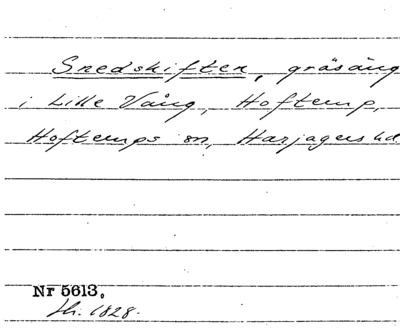 Snedskiften, gräsäng
i Lille Vång, Hofterup,
Hofterups sn, Harjagers hd
Nr 5613,
Sk. 1828.